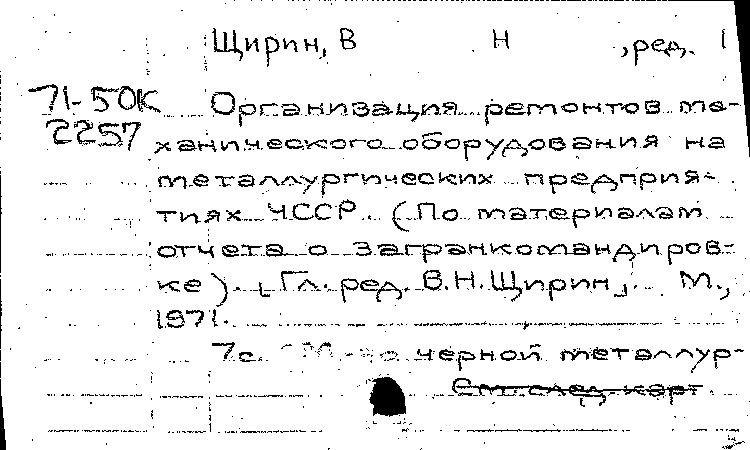 Щирин, В Н ,ред. 1
71-50К Организация ремонтов ме-
2257 ханического оборудования на
металлургических предприя-
тиях ЧССР. (По материалам
отчета о загранкомандиров-
ке). [Гл. ред. В.Н. Щирин]. М.,
1971.
7с. (М-во черной металлур-
См. след. карт.